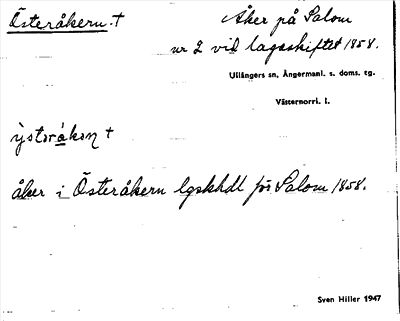 Österåkern. †
Åker på Salom
nr 2 vid lagaskiftet 1858.
Ullångers sn, Ångermanl. s. doms. tg.
Västernorrl. l.
åker i Österåkern lgskhdl för Salom 1858.
Sven Hiller 1947